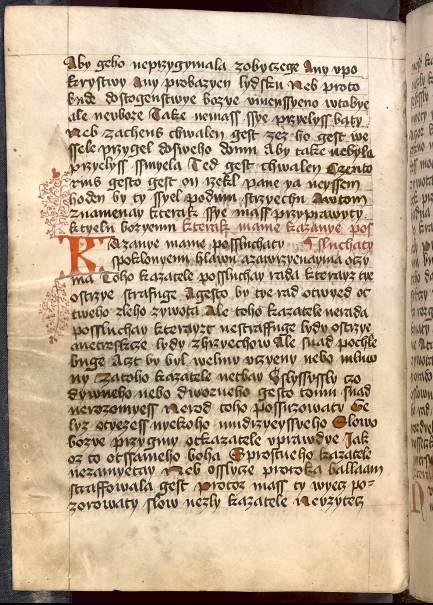 Aby geho neprzygymala zobyczege Any vpo
krystwy Any probazyen lydsku Neb proto
bude dostogenstwye bozye vmenssyeno wtobye
ale newbore Take nemass ssye przelyss baty
Neb zacheus chwalen gest zez ho gest we
sele przygel dosweho domu Aby take nebyla
przyelyss smyela Ted gest chwalen Czento
rius gesto gest on rzekl pane ya neyssem
hoden by ty ssel podmu strzyechu Awtom
znamenay kterak ssye mass przyprawyty
ktyelu bozyemu kterak mame kazanye pos
Kazanye mame possluchaty sluchaty
spoklonyenu hlawu azawrzyenayma oczy
ma Toho kazatele possluchay rada kterayz tye
ostrzye strasuge Agesto by tye rad otwyed ot
tweho zleho zywota Ale toho kazatele nerada
possluchay kterayzt nestrassuge lydy ostrzye
anetreskcze lydy zhrzyechow Ale snad pochle
buge Aczt by byl welmy vczeny nebo mluw
ny Zatoho kazatele netbay Slyssyssly czo
dywneho nebo dworneho gesto tomu snad
nerozomyess Nerod toho possuzowaty Ge
lyz otyezess nyekoho mudrzyeyssyeho Slowo
bozye przygmy otkazatele vprawdye Jak
oz to otssameho boha Sprostneho kazatele
nezamyetay Neb osslycze proroka ballaam
straffowala gest Protoz mass ty wyecz po-
zorowaty slow nezly kazatele Nevzytecz